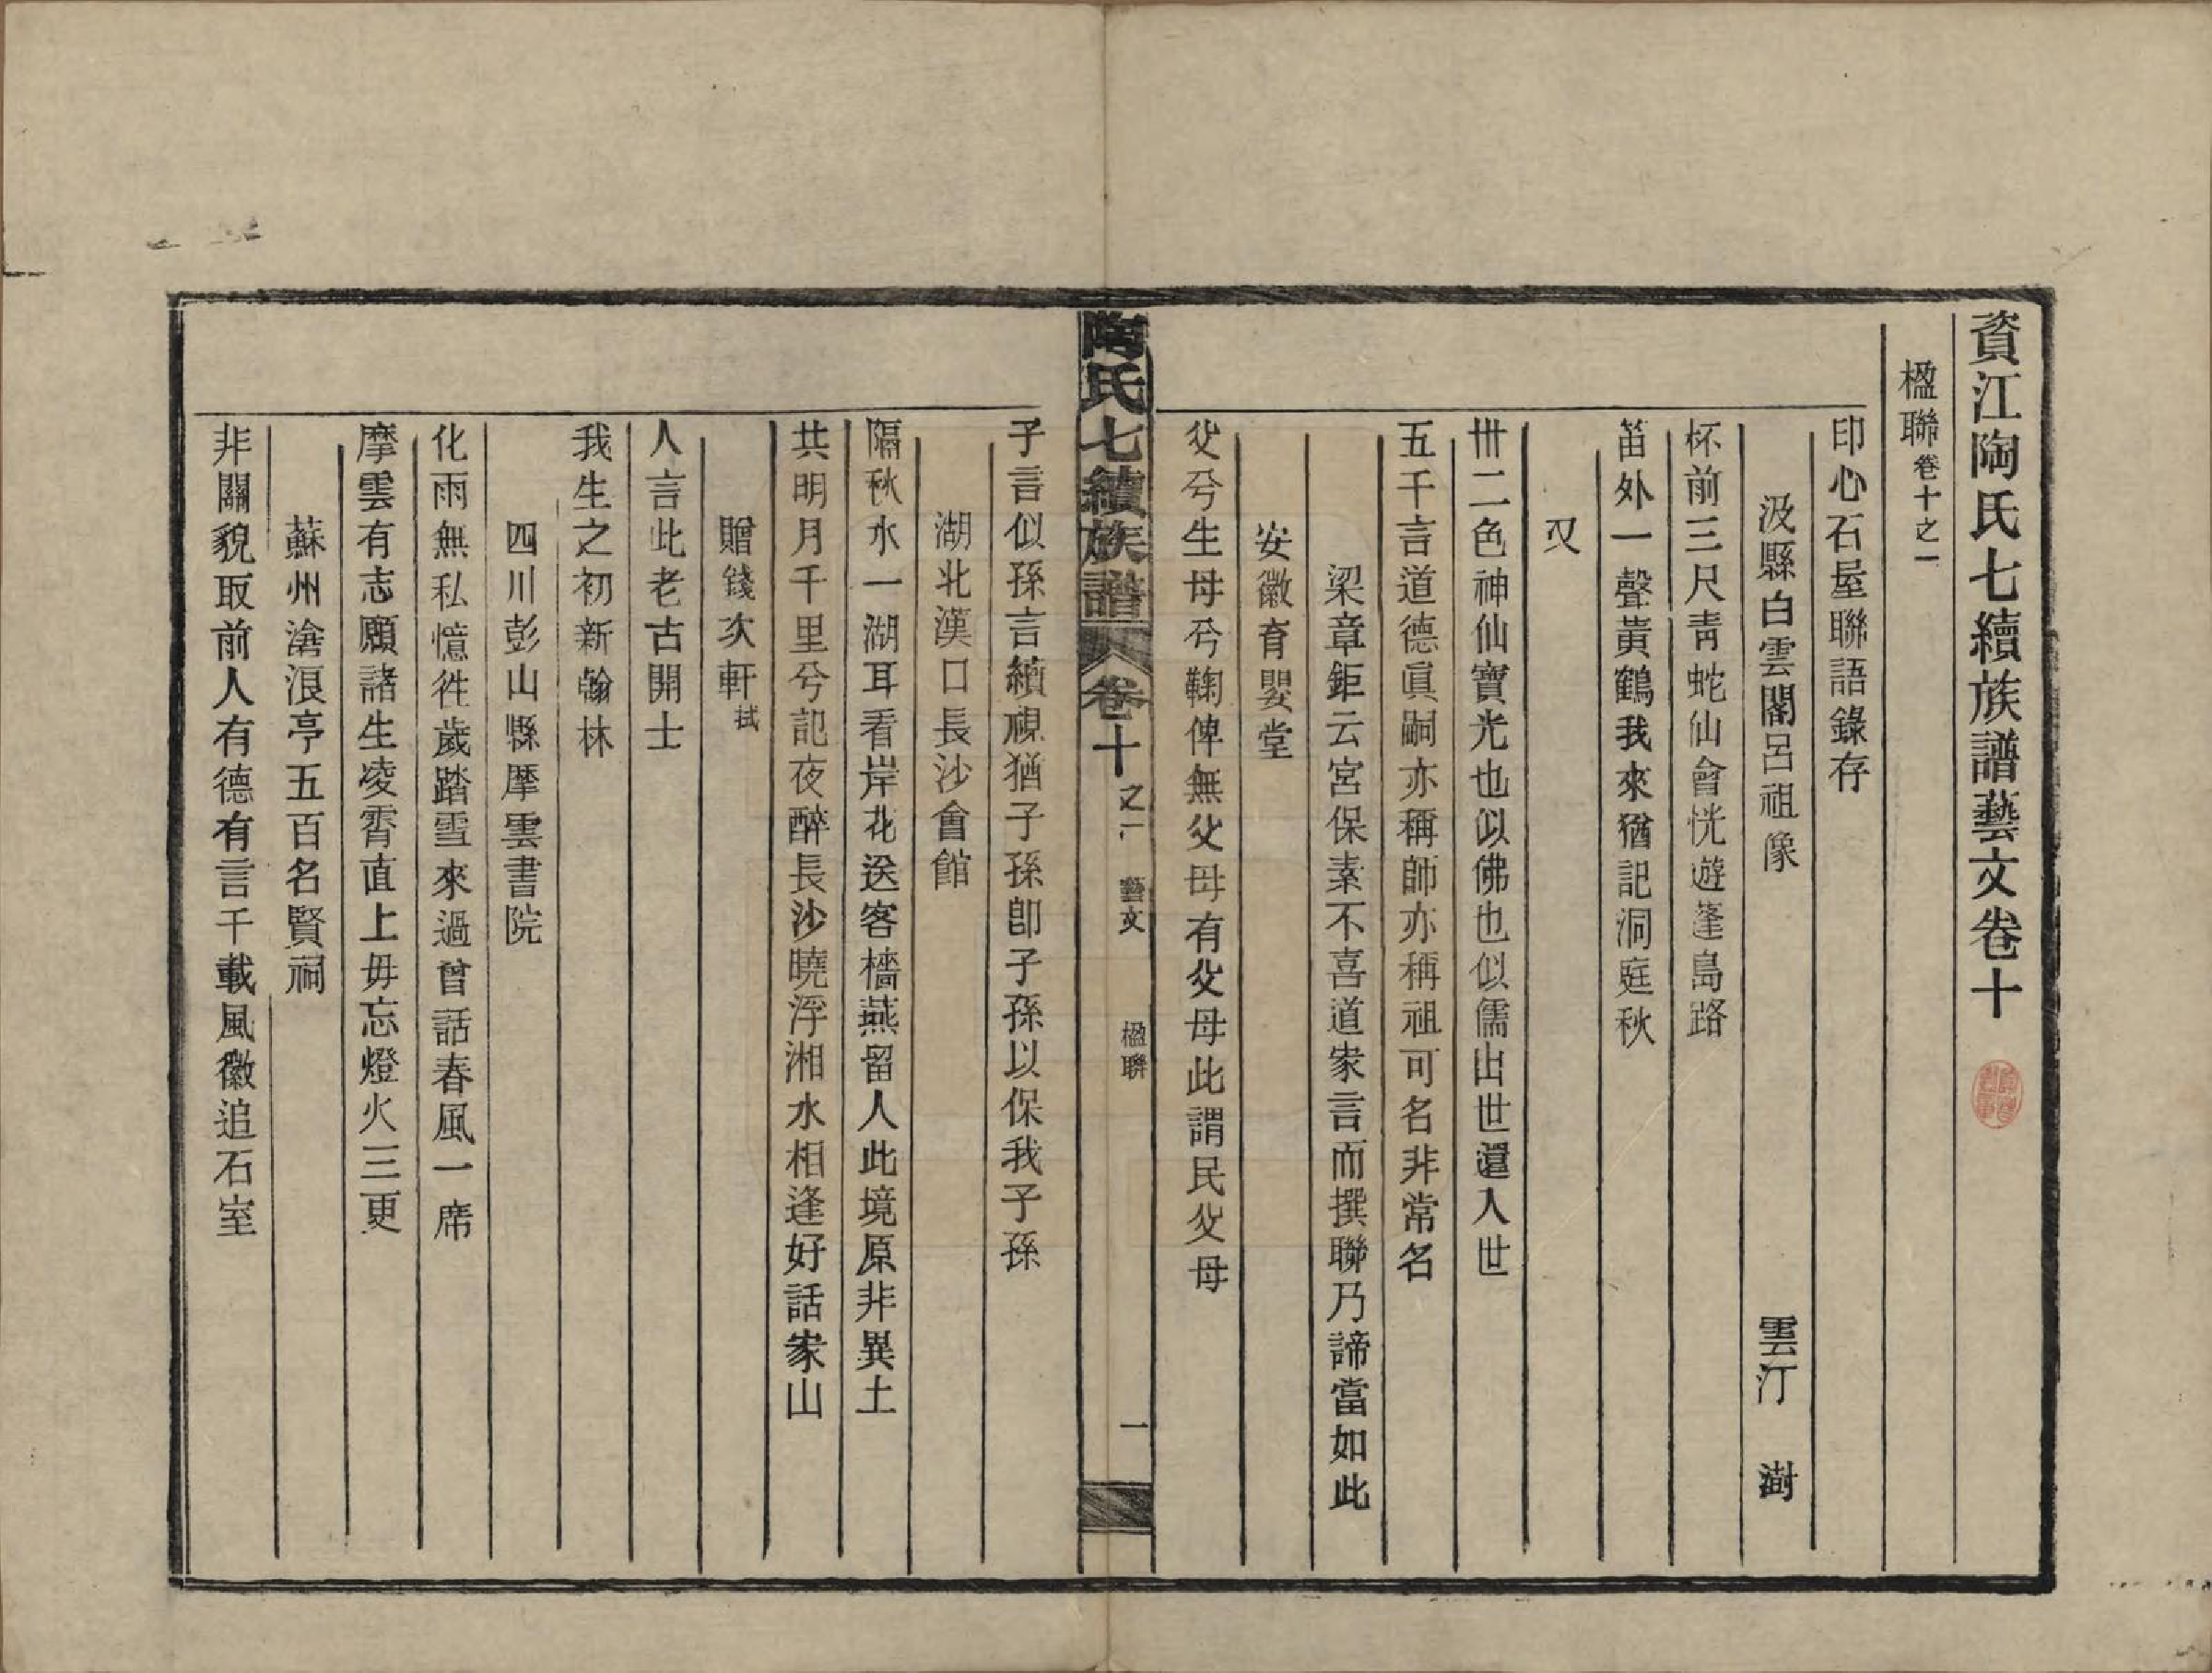 資江陶氏七續族譜藝文卷十
楹聯卷十之一
印心石屋聯語錄存
汲縣白雲閣呂祖像　雲汀　澍
杯前三尺靑蛇仙會恍遊蓬島路
笛外一聲黃鶴我來猶記洞庭秋
又
卅二色神仙寶光也似佛也似儒出世還入世
五千言道德眞嗣亦稱師亦稱祖可名非常名
梁章鉅云宮保素不喜道家言而撰聯乃諦當如此
安徽育嬰堂
父兮生母兮鞠俾無父母有父母此謂民父母
陶氏七續族譜　卷十　之一　藝文　楹聯　一
子言似孫言續視猶子孫卽子孫以保我子孫
湖北漢口長沙會館
隔秋水一湖耳看岸花送客檣燕留人此境原非異土
共明月千里兮記夜醉長沙曉浮湘水相逢好話家山
贈錢次軒弑
人言此老古開士
我生之初新翰林
四川彭山縣摩雲書院
化雨無私憶徃歲踏雪來過曾話春風一席
摩雲有志願諸生凌霄直上毋忘燈火三更
蘇州滄浪亭五百名賢祠
非關貌取前人有德有言千載風徽追石室